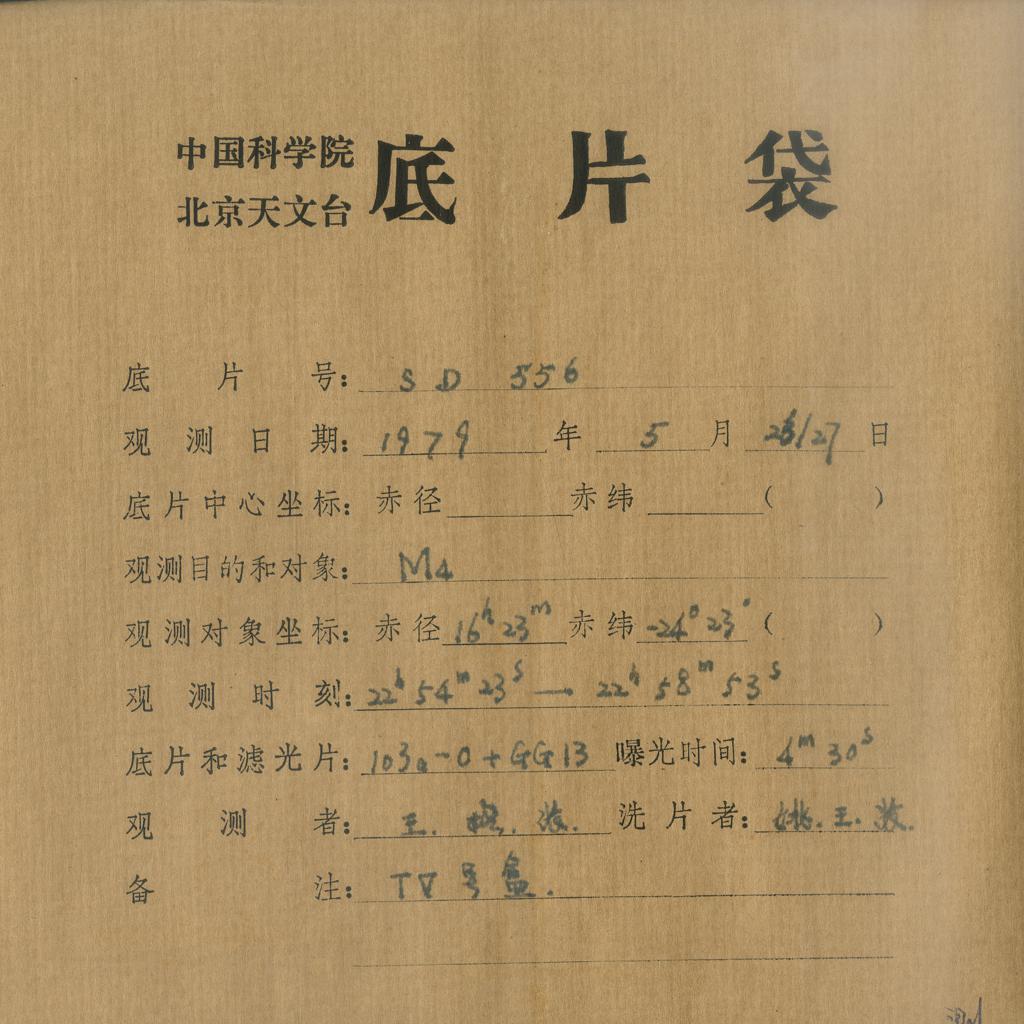 中国科学院
北京天文台
底片袋
底片号: SD 556
观测日期: 1979年 5月 26/27日
底片中心坐标: 赤径 赤纬 ( )
观测目的和对象: M4
观测对象坐标: 赤径 16h 23m 赤纬 -24° 23' ( )
观测时刻: 22h 54m 23s — 22h 58m 53s
底片和滤光片: 103a-O + GG13 曝光时间: 4m 30s
观测者: 王. 洗片者: 姚. 王.
备注: 号盒.
测